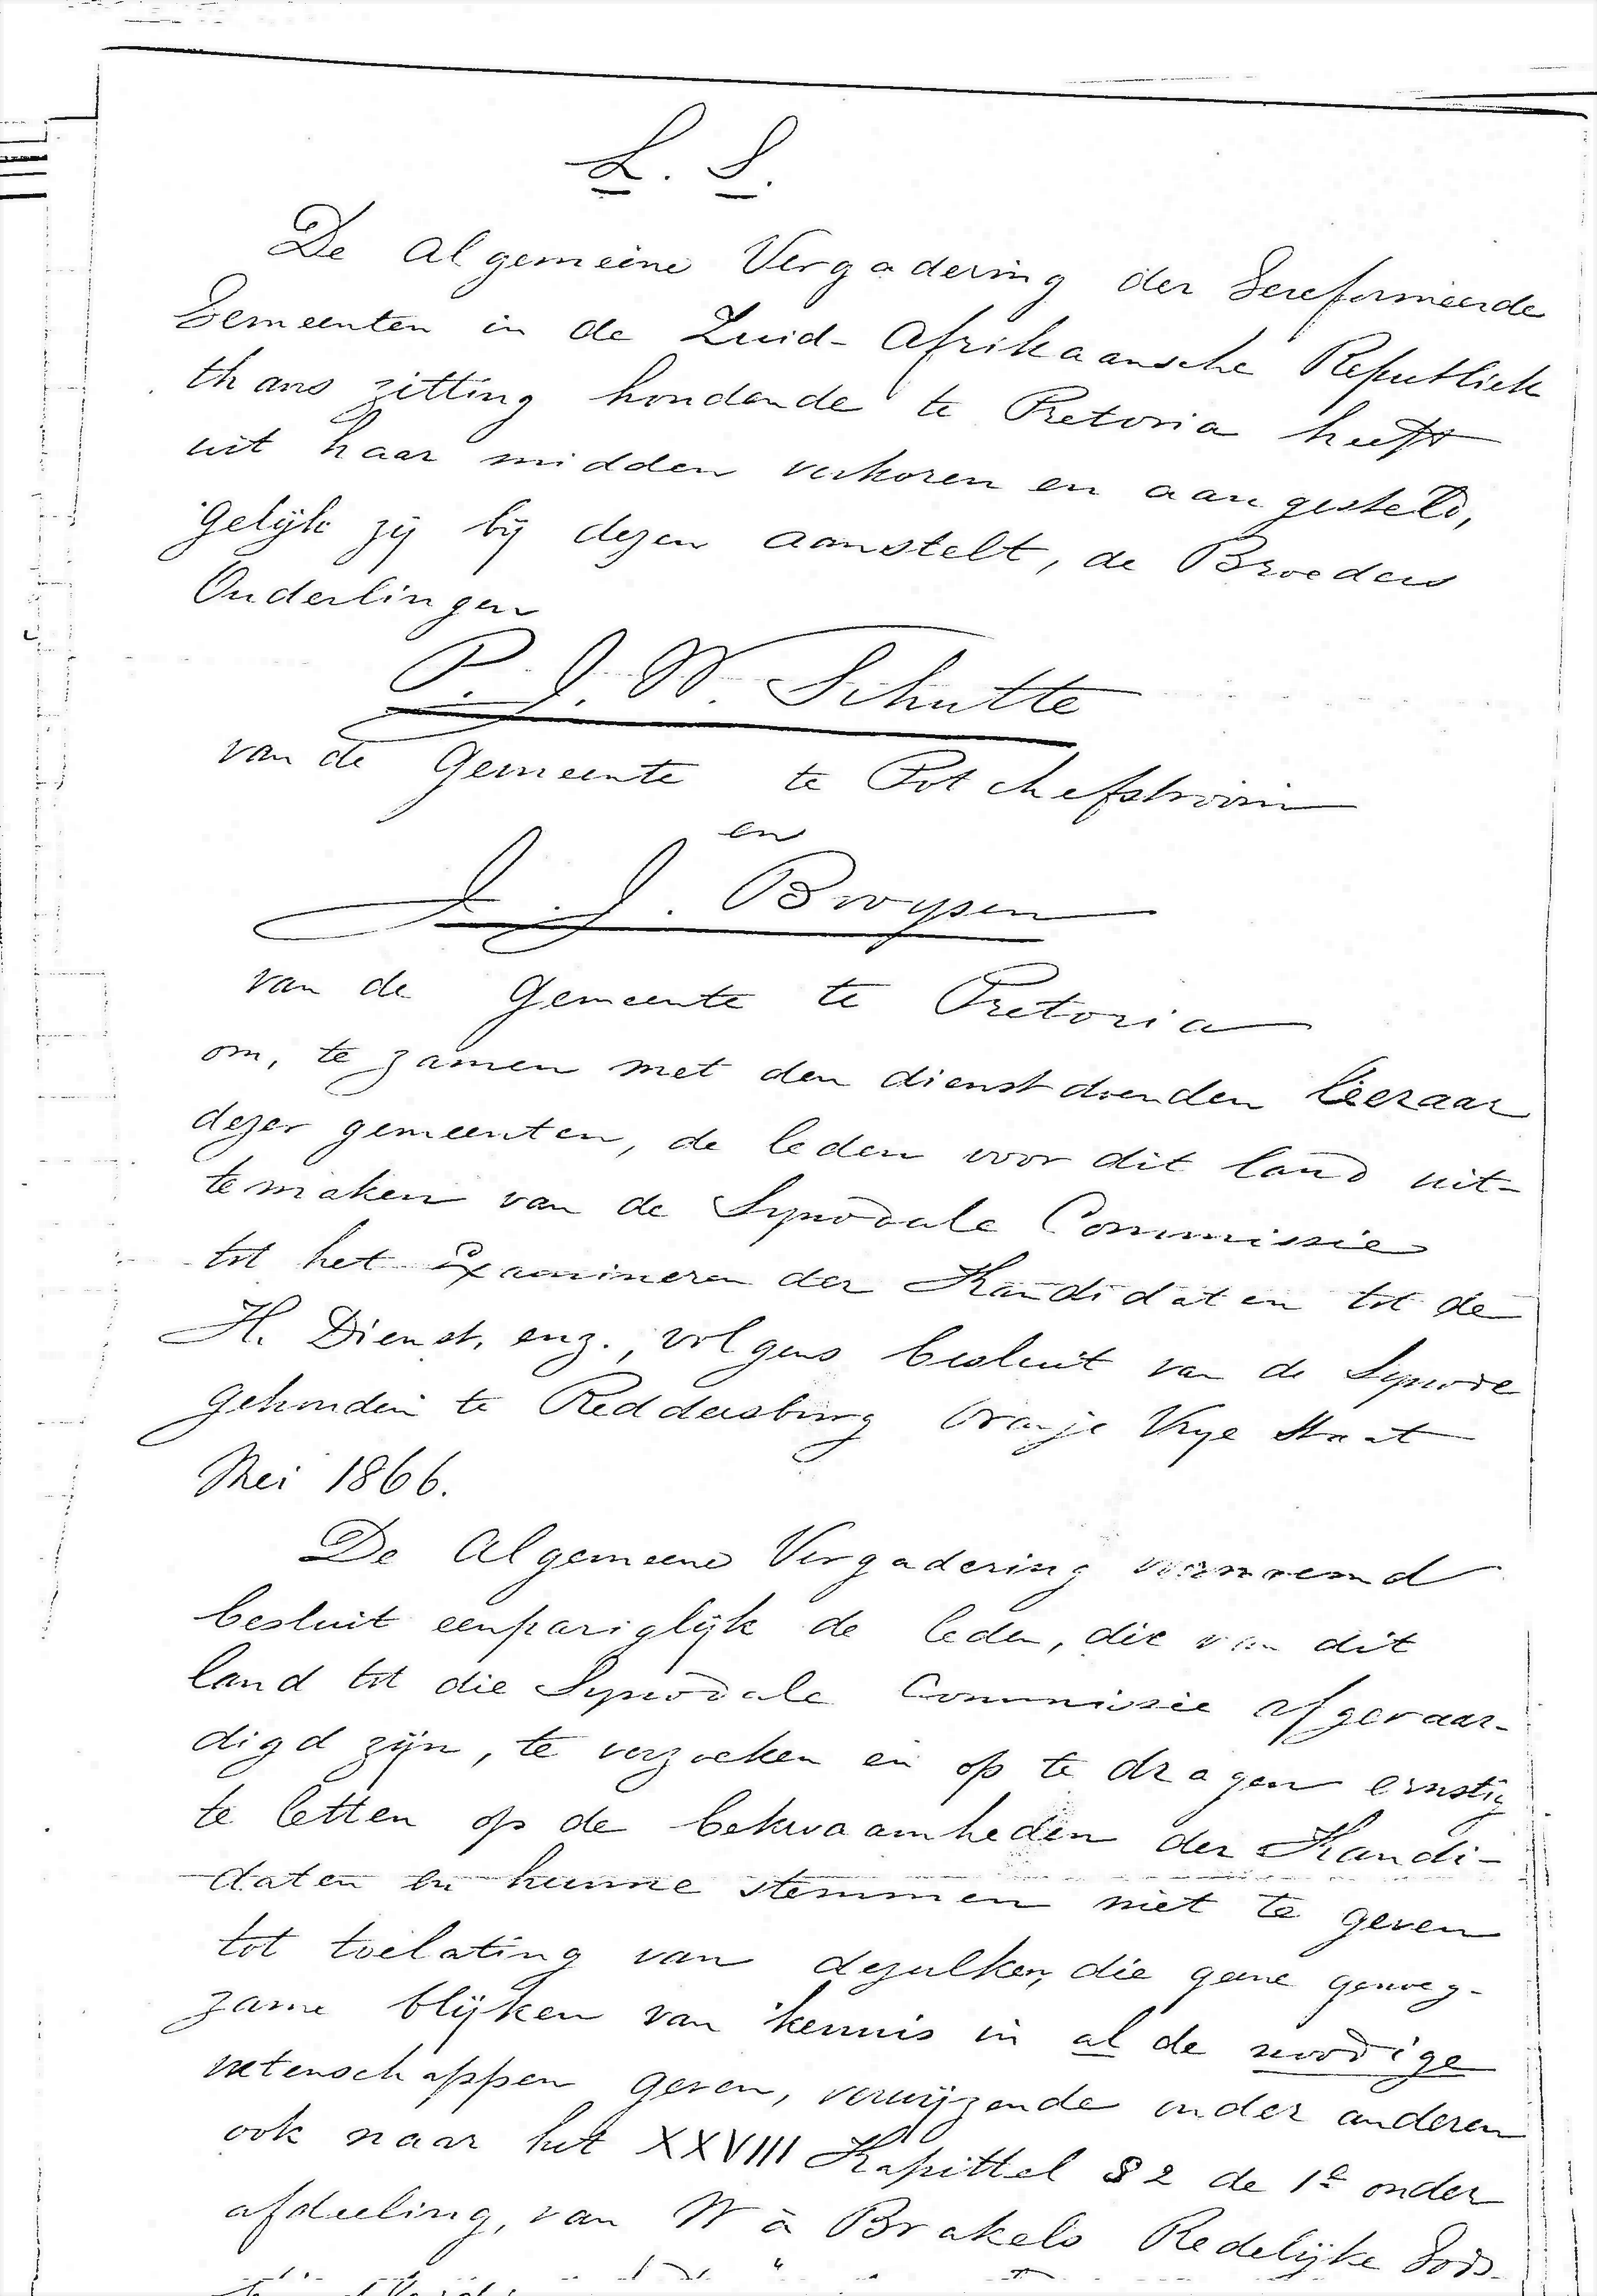 L. S.
De Algemeene Vergadering der Gereformeerde
Gemeenten in de Zuid-Afrikaansche Republiek
thans zitting houdende te Pretoria heeft
uit haar midden verkoren en aangesteld,
Gelijk zij bij dezen aanstelt, de Broeders
Ouderlingen
P. J. W. Schutte
van de Gemeente te Potchefstroom
en
J. J. Bruysen
van de Gemeente te Pretoria
om, te zamen met den dienstdoenden leeraar
dezer gemeenten, de leden voor dit land uit-
temaken van de Synodale Commissie
tot het Examineren der Kandidaten tot de
H. Dienst, enz., volgens besluit van de Synode
gehouden te Reddersburg Oranje Vrye Staat
Mei 1866.
De Algemeene Vergadering voornoemd
besluit eenpariglijk de leden, die van dit
land tot die Synodale Commissie afgevaar-
digd zijn, te verzoeken en op te dragen ernstig
te letten op de bekwaamheden der Kandi-
daten en hunne stemmen niet te geven
tot toelating van dezulken, die geene genoeg-
zame blijken van kennis in al de noodige
wetenschappen geven, verwijzende onder anderen
ook naar het XXVIII Kapittel § 2 de 1e onder
afdeeling, van W à Brakels Redelijke Gods-